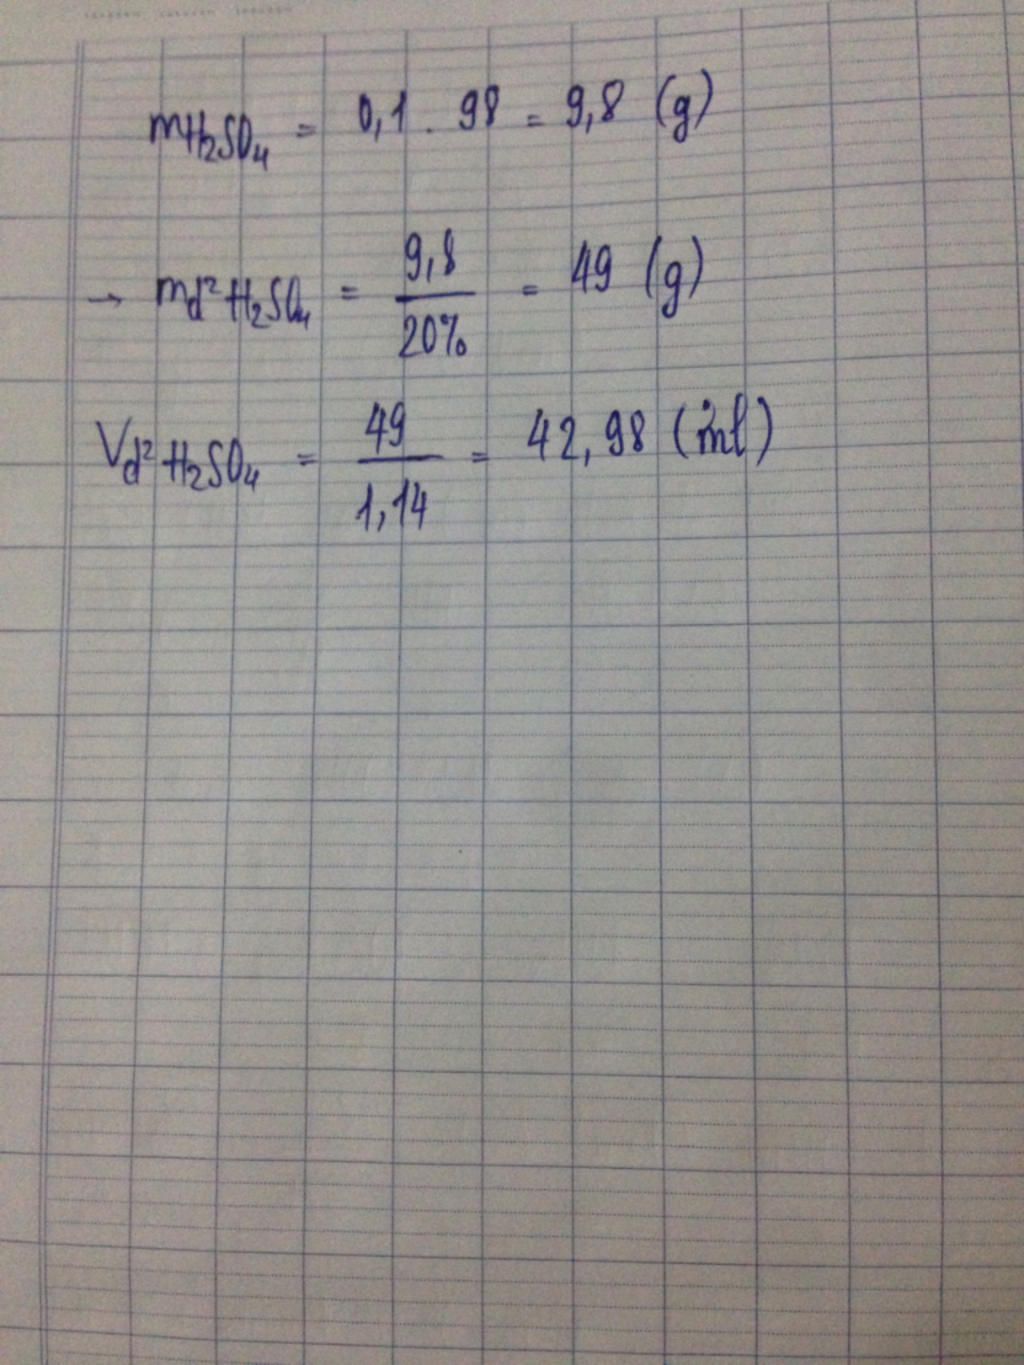 mH₂SO₄ = 0,1 . 98 = 9,8 (g)
→ md² H₂SO₄ = 9,8 / 20% = 49 (g)
Vd² H₂SO₄ = 49 / 1,14 = 42,98 (ml)